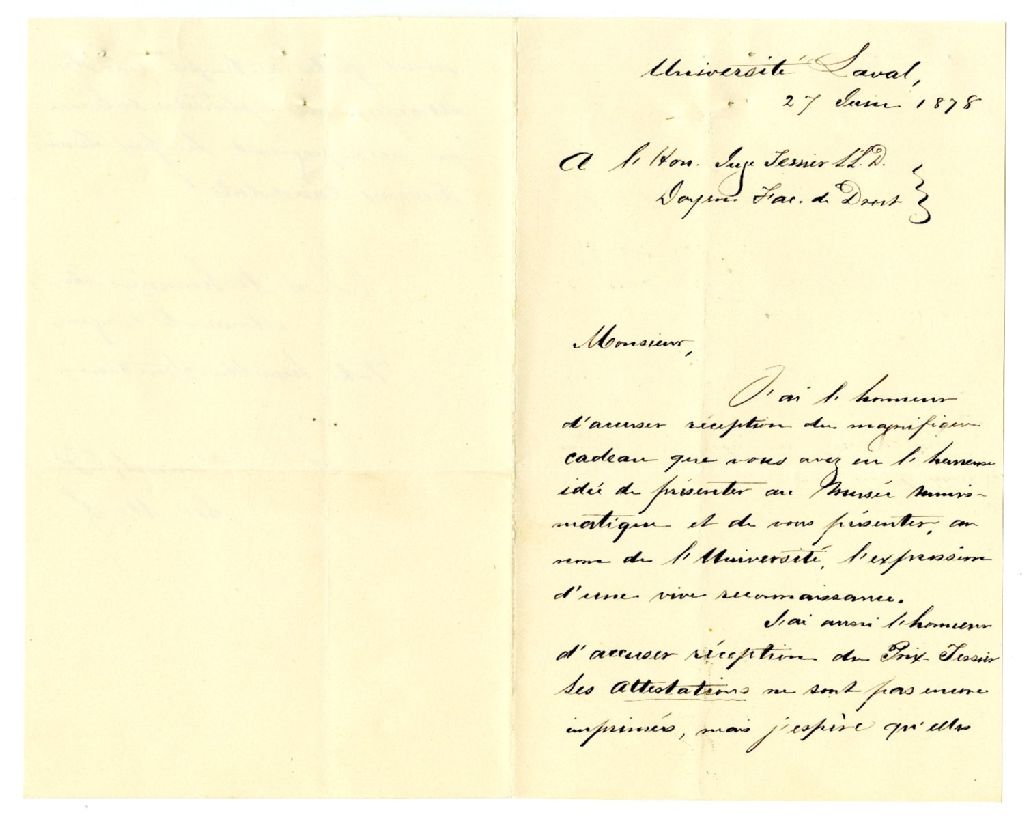 Université Laval,
27 Juin 1878
A l'Hon. Juge Tessier LL.D.
Doyen Fac. de Droit
Monsieur,
J'ai l'honneur
d'accuser réception du magnifique
cadeau que vous avez eu l'heureuse
idée de présenter au Musée numis-
matique et de vous présenter, au
nom de l'Université, l'expression
d'une vive reconnaissance.
J'ai aussi l'honneur
d'accuser réception du Prix Tessier
Les Attestations ne sont pas encore
imprimés, mais j'espère qu'elles